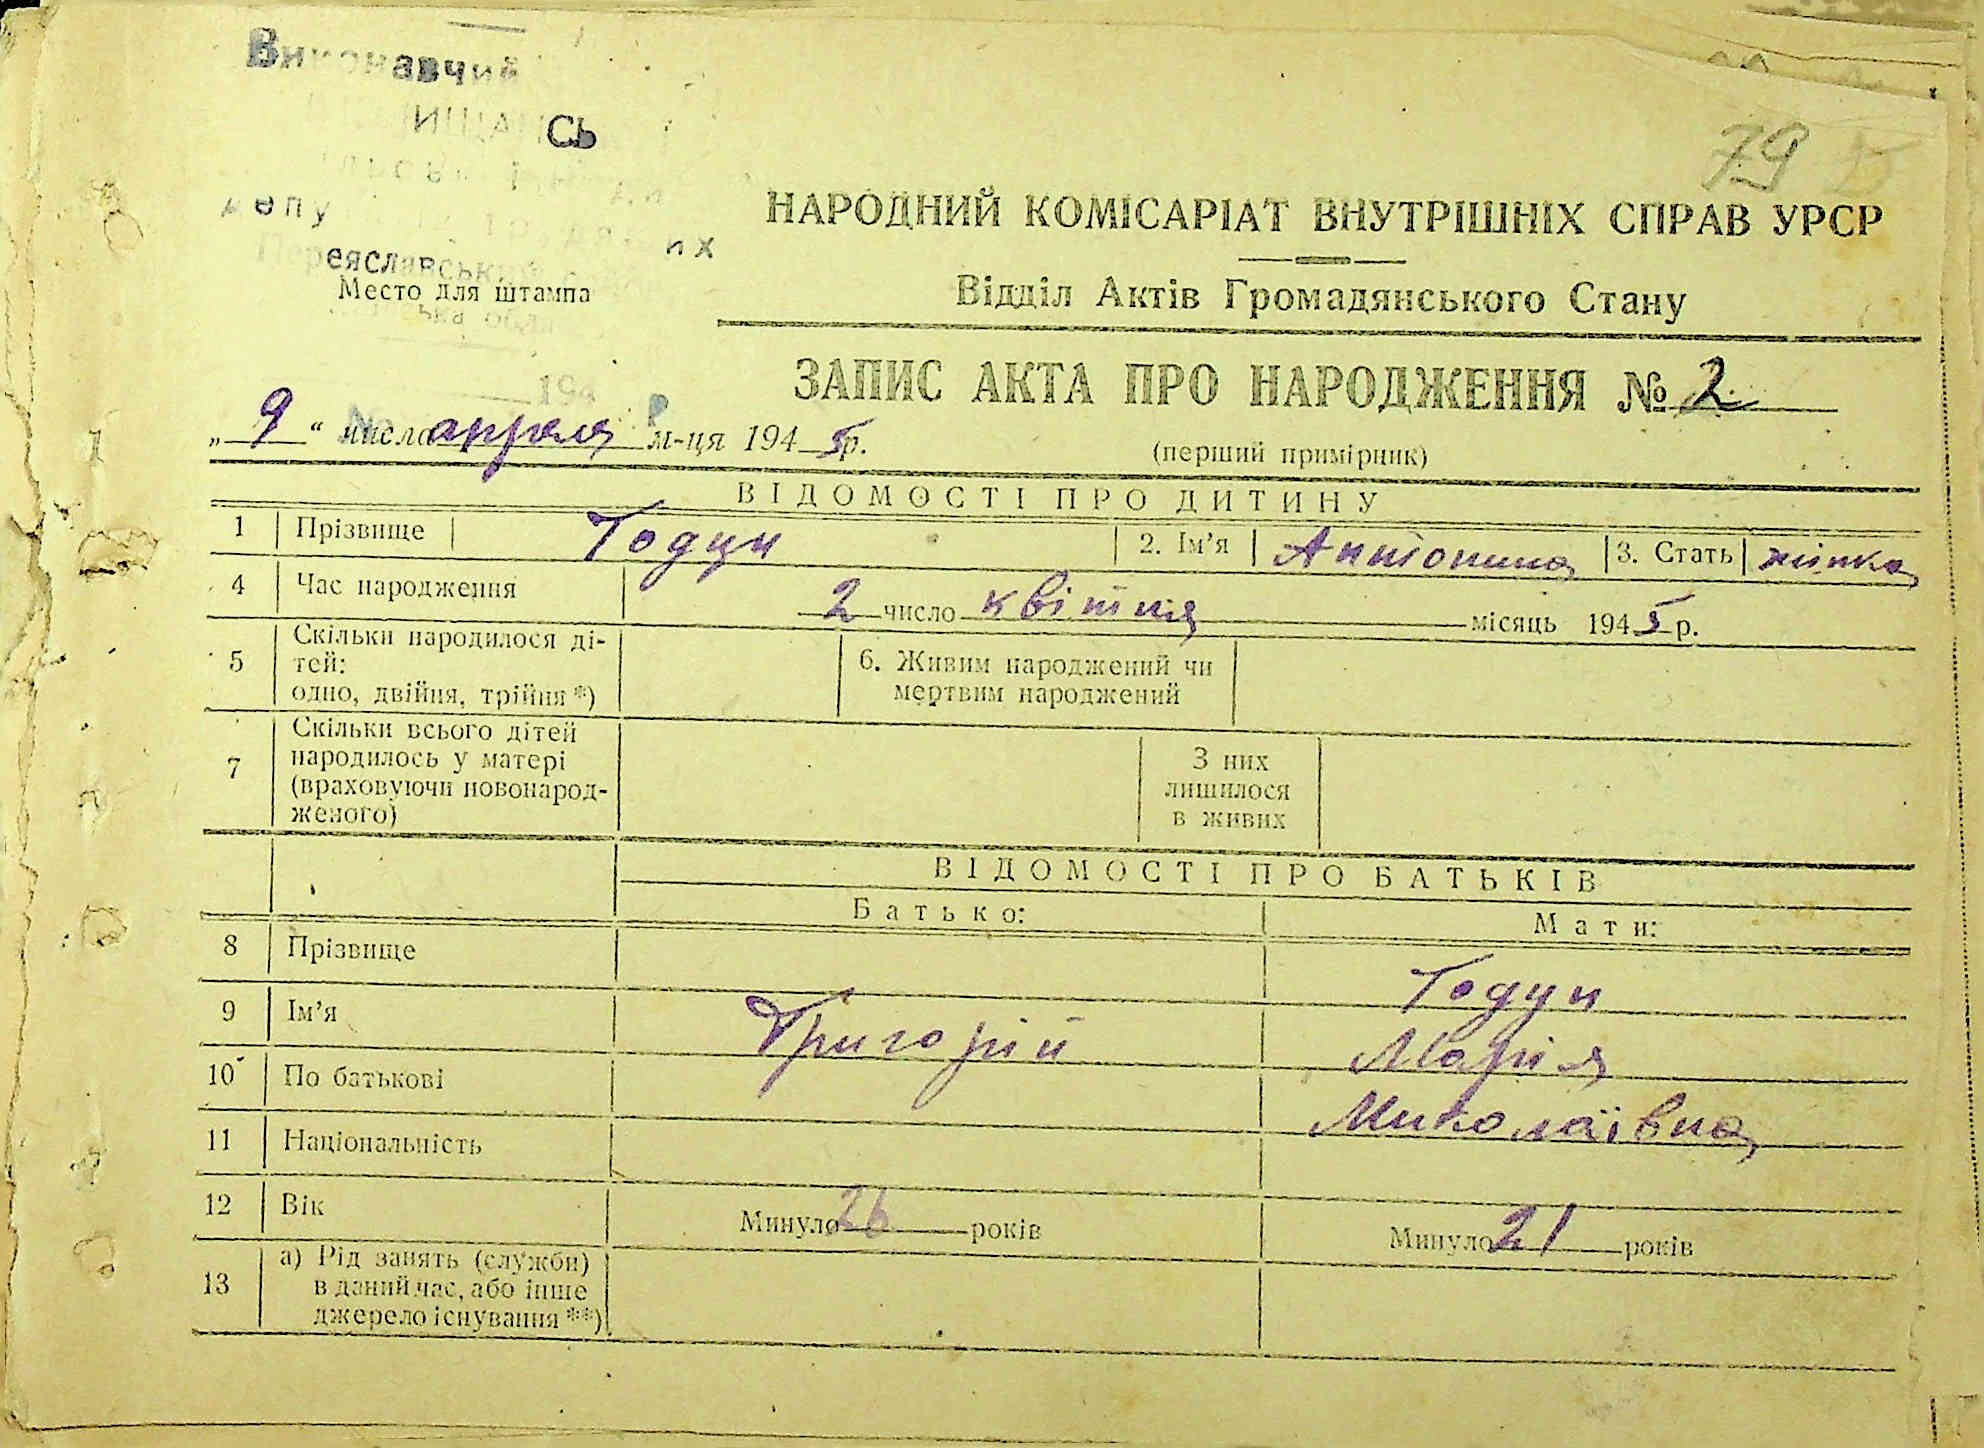 Виконавчий
депу
их
Переяславський
Место для штампа
79
НАРОДНИЙ КОМІСАРІАТ ВНУТРІШНІХ СПРАВ УРСР
Відділ Актів Громадянського Стану
ЗАПИС АКТА ПРО НАРОДЖЕННЯ № 2
„ 9 “ числа апреля м-ця 1945 р.
(перший примірник)
ВІДОМОСТІ ПРО ДИТИНУ
1 Прізвище Годун 2. Ім’я Антонина 3. Стать жінка
4 Час народження 2 число квітня місяць 1945 р.
5 Скільки народилося ді-
тей:
одно, двійня, трійня *)
6. Живим народжений чи
мертвим народжений
7 Скільки всього дітей
народилось у матері
(враховуючи новонарод-
женого)
З них
лишилося
в живих
ВІДОМОСТІ ПРО БАТЬКІВ
Батько: Мати:
8 Прізвище Годун
9 Ім’я Григорій Марія
10 По батькові Миколаївна
11 Національність
12 Вік Минуло 26 років Минуло 21 років
13 а) Рід занять (служби)
в даний час, або інше
джерело існування **)